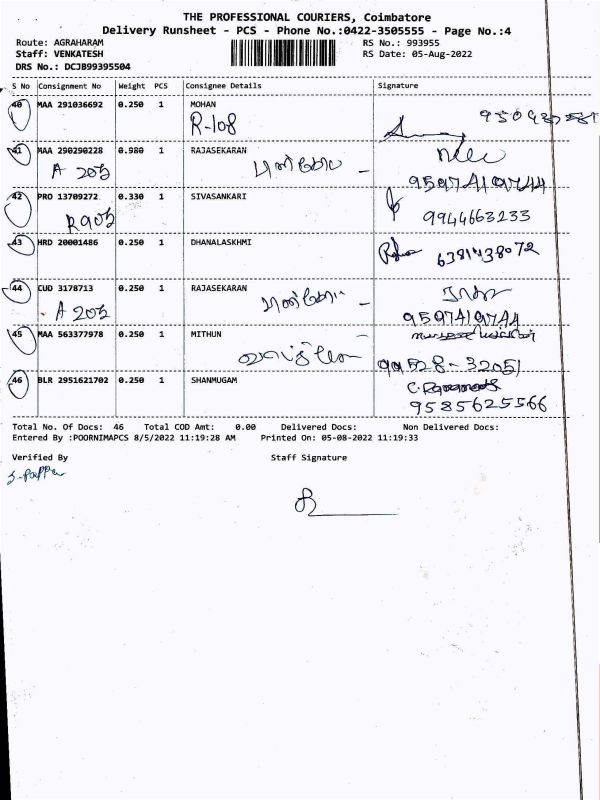 THE PROFESSIONAL COURIERS, Coimbatore
Delivery Runsheet - PCS - Phone No.:0422-3505555 - Page No.:4
Route: AGRAHARAM RS No.: 993955
Staff: VENKATESH RS Date: 05-Aug-2022
DRS No.: DCJB99395504
S No Consignment No Weight PCS Consignee Details Signature
40 MAA 291036692 0.250 1 MOHAN
R-108
41 MAA 290290228 0.980 1 RAJASEKARAN
A 203 -
9597419744
42 PRO 13709272 0.330 1 SIVASANKARI
R903 9944663233
43 HRD 20001486 0.250 1 DHANALASKHMI
6381438072
44 CUD 3178713 0.250 1 RAJASEKARAN
A 203 -
9597419744
45 MAA 563377978 0.250 1 MITHUN
99528-32051
46 BLR 2951621702 0.250 1 SHANMUGAM
9585625566
Total No. Of Docs: 46 Total COD Amt: 0.00 Delivered Docs: Non Delivered Docs:
Entered By :POORNIMAPCS 8/5/2022 11:19:28 AM Printed On: 05-08-2022 11:19:33
Verified By Staff Signature